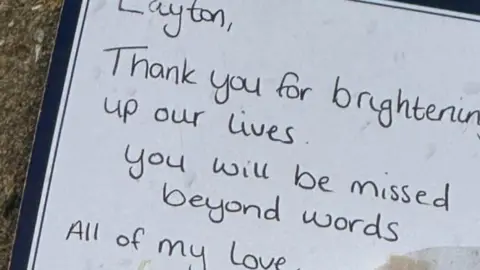 Layton,
Thank you for brightening
up our lives.
you will be missed
beyond words
All of my love,